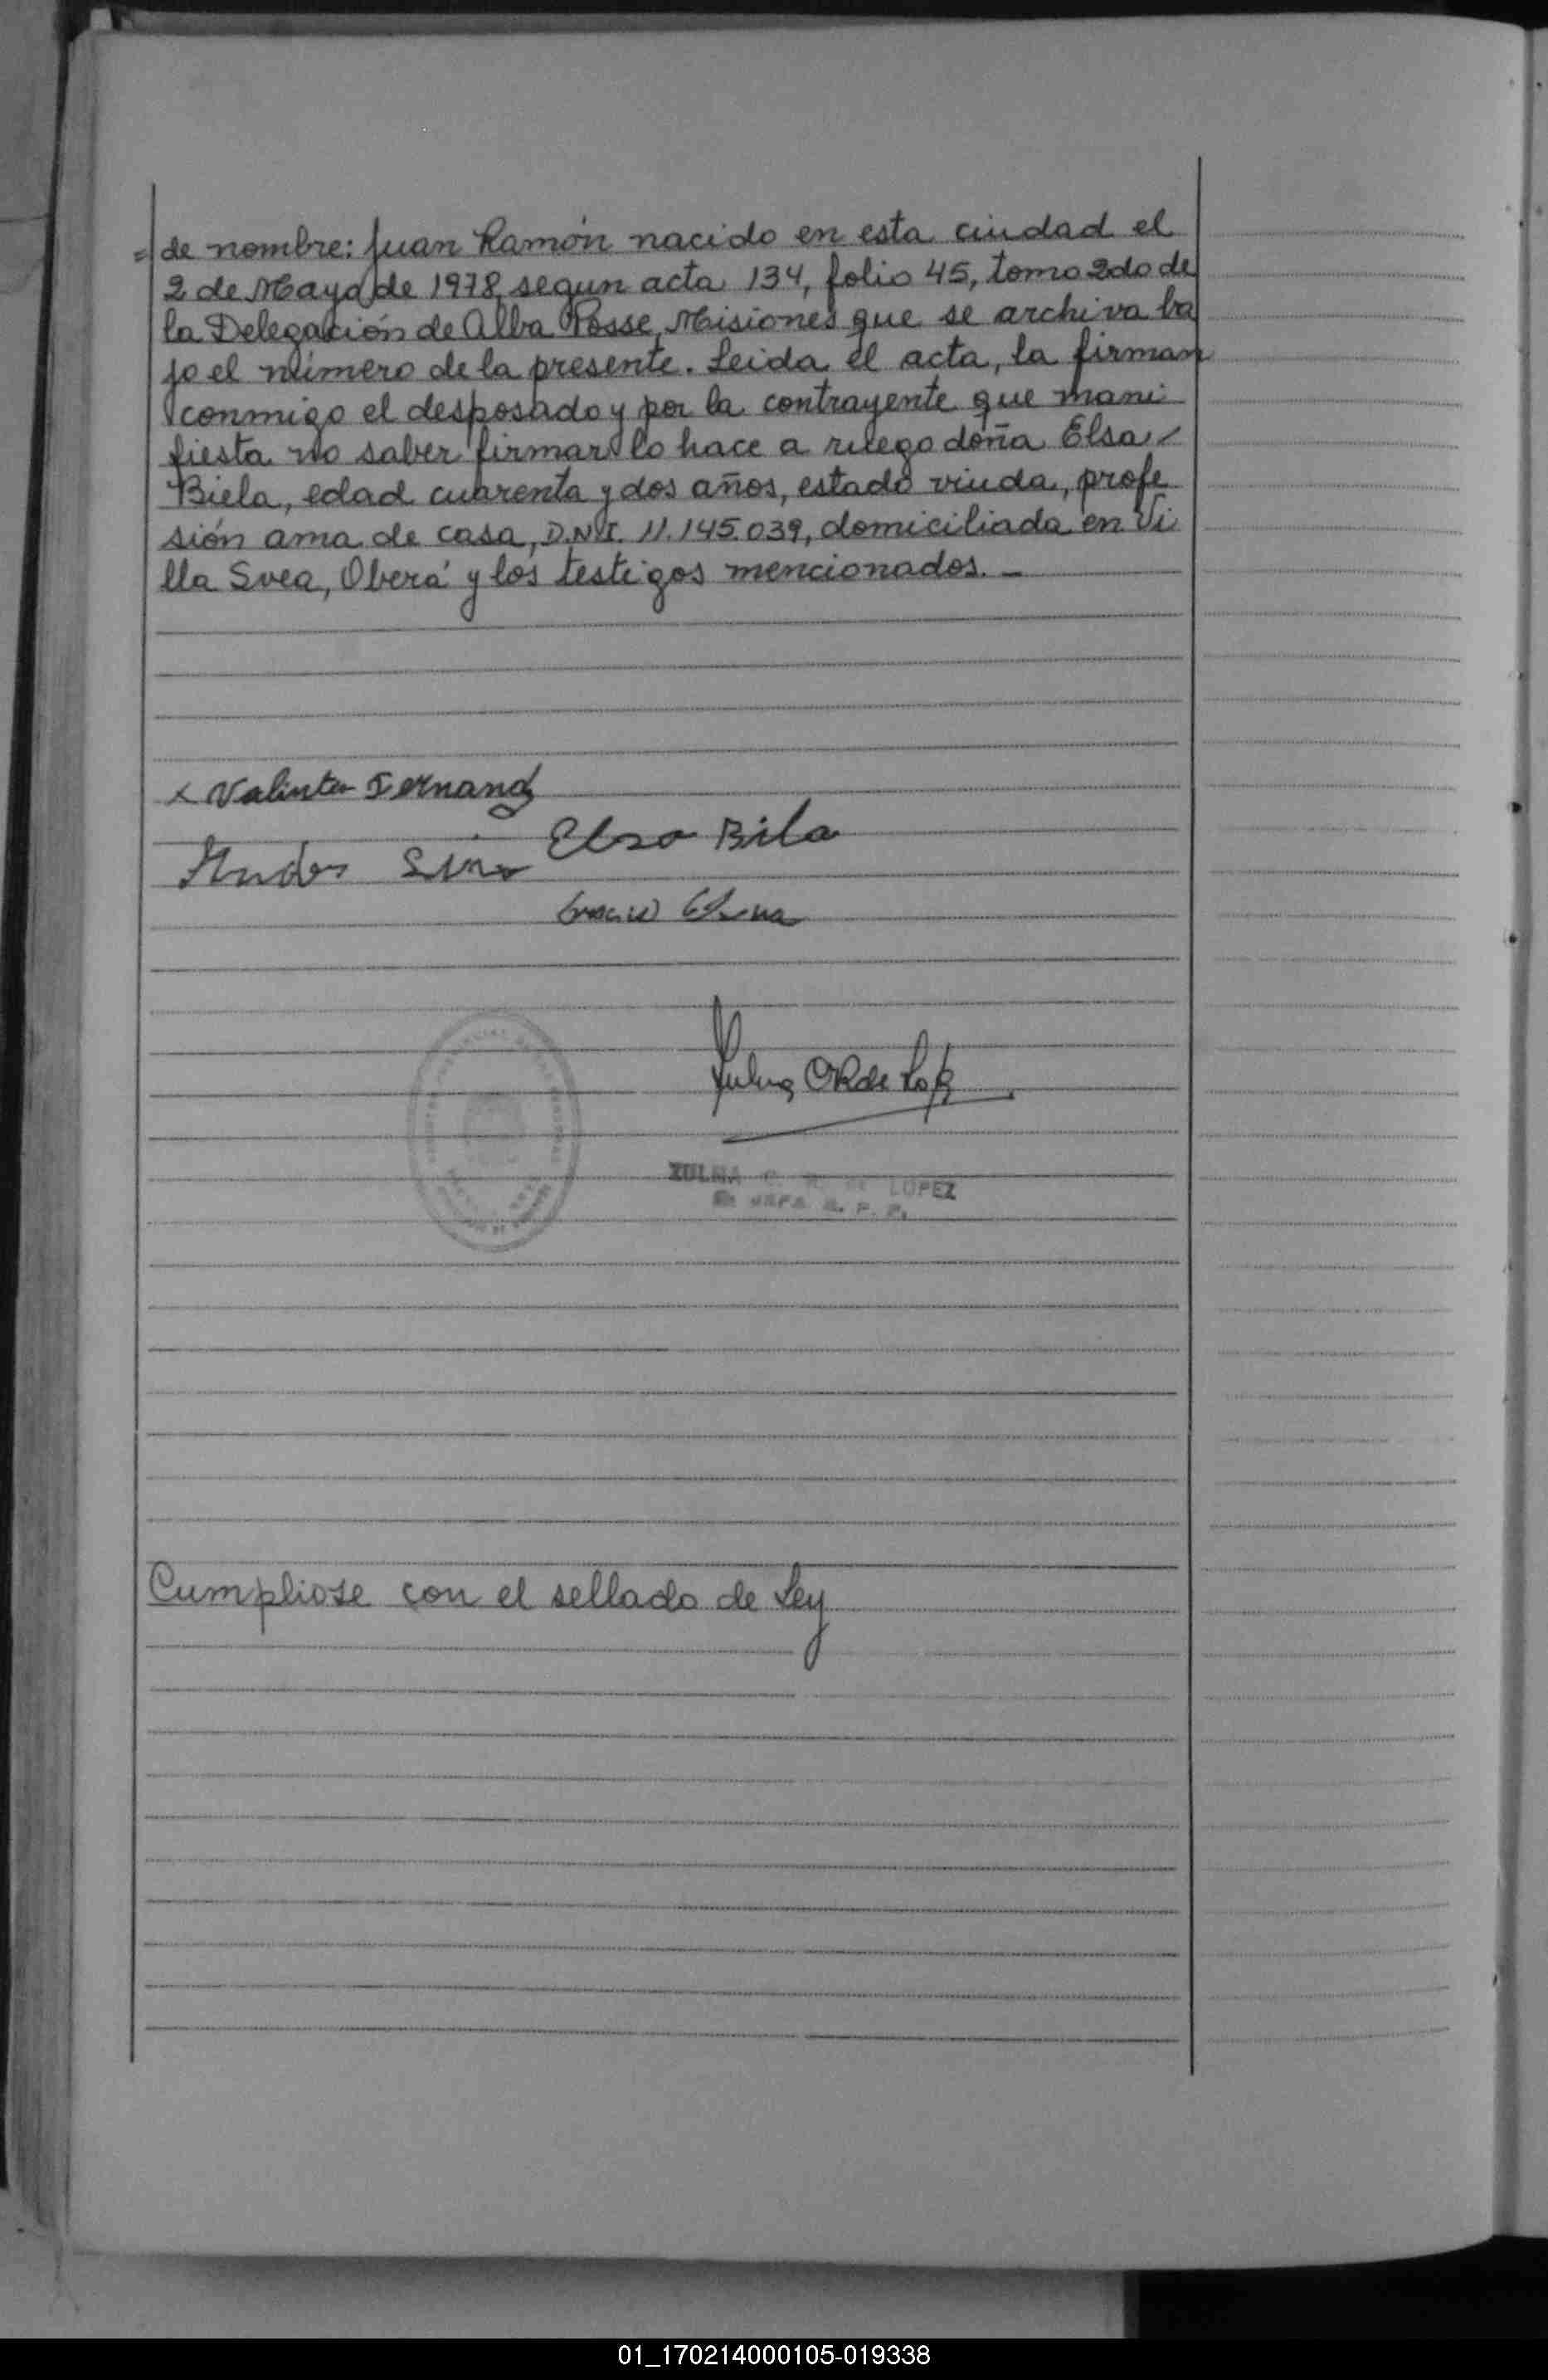 = de nombre: Juan Ramón nacido en esta ciudad el
2 de Mayo de 1978, segun acta 134, folio 45, tomo 2do de
la Delegación de Alba Posse, Misiones que se archiva ba
jo el número de la presente. Leida el acta, la firman
conmigo el desposado y por la contrayente que mani
fiesta no saber firmar lo hace a ruego doña Elsa
Biela, edad cuarenta y dos años, estado viuda, profe
sión ama de casa, D.N.I. 11.145.039, domiciliada en Vi
lla Svea, Oberá y los testigos mencionados. -
x Valintin Fernand
Elsa Bila
ZULMA LOPEZ
Cumpliose con el sellado de Ley
01_170214000105-019338